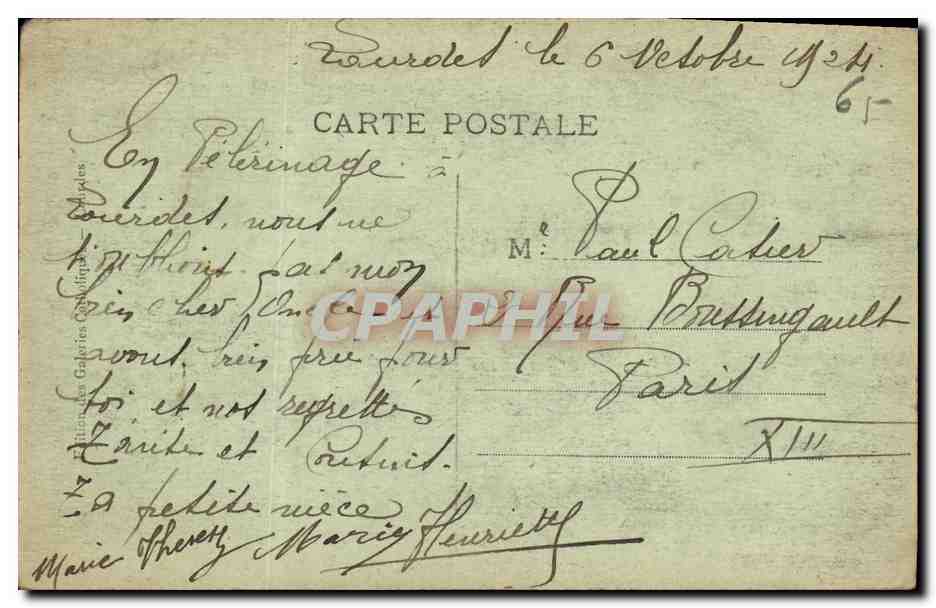 Lourdes le 6 Octobre 1924.
65
CARTE POSTALE
En Pélérinage à
Lourdes, nous ne
t'oublions pas mon
bien cher Oncle et
avons bien prié pour
toi et nos regrettés
Tante et
Ta petite nièce
Marie Henriette
Marie Therese
Me Paul
2 Rue Boussingault
Paris
XIII
Editions des Galeries Catholiques - Lourdes
CPAPHIL